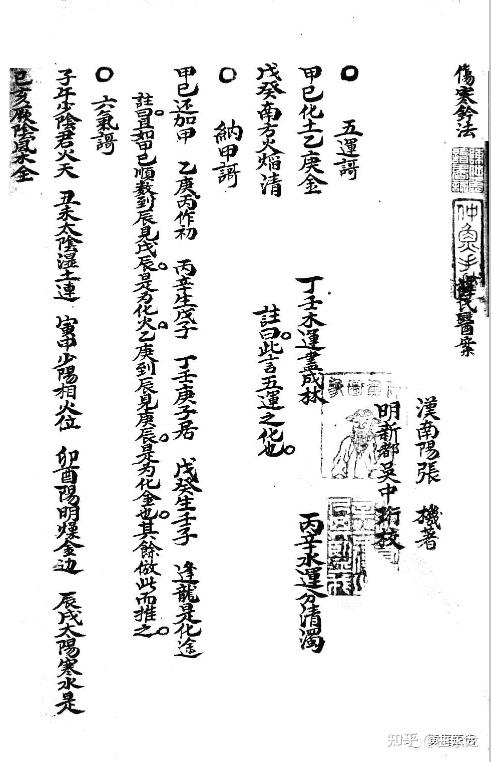 傷寒鈐法 氏醫案
漢南陽張 機著
明新都吳中珩校
〇 五運謌
甲巳化土乙庚金 丁壬木運盡成林 丙辛水運分清濁
戊癸南方火焰清 註曰此言五運之化也。
〇 納甲謌
甲巳还加甲 乙庚丙作初 丙辛生戊子 丁壬庚子居 戊癸生壬子 逢龍是化途
註曰且如甲巳順數到辰見戊辰。是为化火。乙庚到辰見庚辰。是为化金也。其餘倣此而推之。
〇 六氣謌
子午少陰君火天 丑未太陰湿土連 寅申少陽相火位 卯酉陽明燥金边 辰戌太陽寒水是
巳亥厥陰風木全
知乎